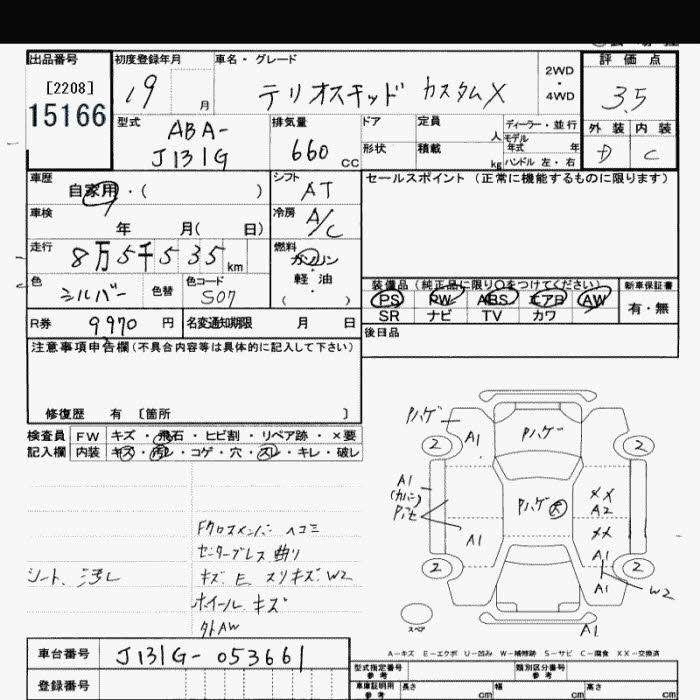 出品番号 初度登録年月 車名・グレード 2WD・4WD 評価点
[2208]
15166
19 月 テリオスキッド カスタムX 3.5
型式 排気量 ドア 定員 人 ディーラー・並行 外装 内装
ABA-
J131G 660 CC 形状 積載 kg モデル年式 年 ハンドル 左・右 D C
車歴 シフト セールスポイント (正常に機能するものに限ります)
自家用・( ) AT
車検 年 月( 日) 冷房 A/C
走行 8万5千535km 燃料 ガソリン・軽油・( )
色 シルバー 色替 色コード S07
装備品 (純正品に限り○をつけてください) 新車保証書
PS PW ABS エアB AW 有・無
SR ナビ TV カワ
R券 9970 円 名変通知期限 月 日
後日品
注意事項申告欄(不具合内容等は具体的に記入して下さい)
修復歴 有 〔箇所 〕
検査員 FW キズ・飛石・ヒビ割・リペア跡・×要
記入欄 内装 キズ・汚レ・コゲ・穴・スレ・キレ・破レ
Pハゲ
A1
Pハゲ
2
2
A1
(カバン)
Pハゲ 大
XX
A2
XX
A1
A1
2
2
A1
W2
スペア
A1
Fクロスメンバー ヘコミ
センターブレス 曲り
シート、汚レ キズ E スリキズ W2
ホイール キズ
外AW
A-キズ E-エクボ U-凹み W-補修跡 S-サビ C-腐食 XX-交換済
車台番号 J131G-053661
登録番号
型式指定番号 参考 類別区分番号 参考
車庫証明用 参考 長さ cm 幅 cm 高さ cm